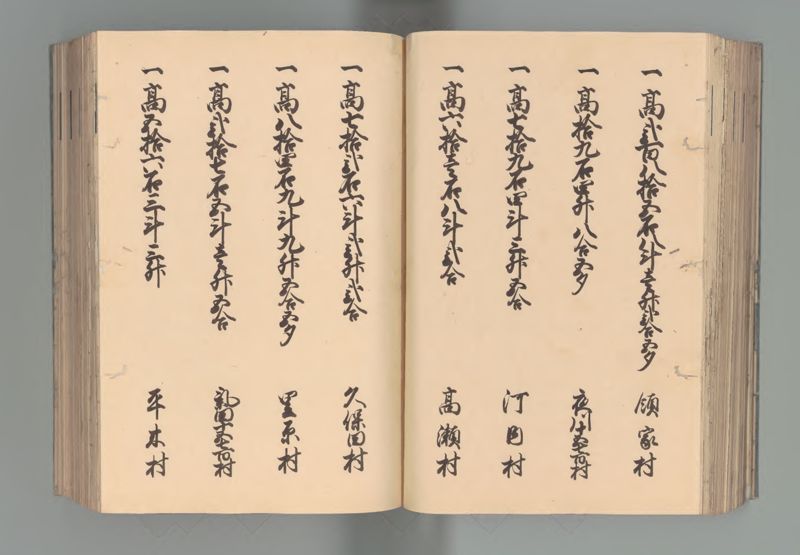 一高弐百八拾五石八斗壱升弐合五夕 領家村
一高拾九石四升八合五夕 村
一高七拾九石四斗三升五合 河田村
一高六拾壱石八斗弐合 高瀬村
一高七拾弐石六斗弐升弐合 久保田村
一高八拾四石九斗九升五合五夕 里原村
一高弐拾七石五斗壱升五合 村
一高五拾六石三斗三升 平木村